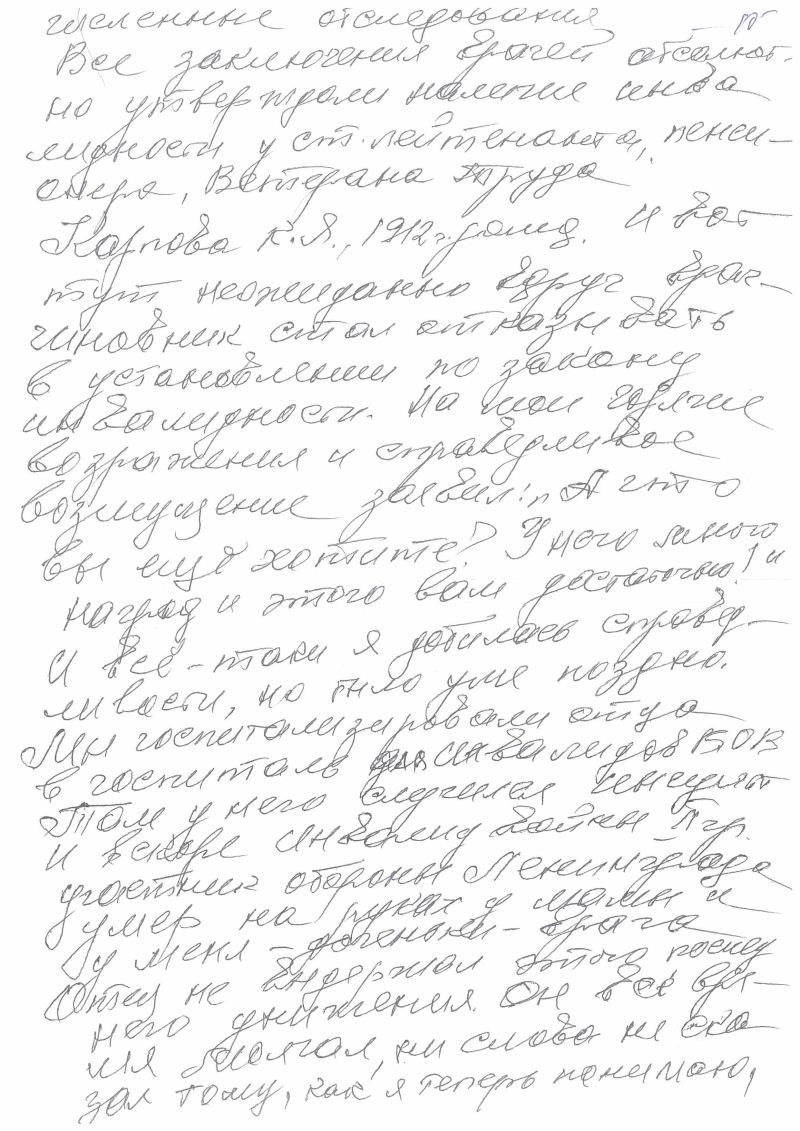 численные отследования
Все заключения врачей абсолют-
но утверждали наличие инва
лидности у ст. лейтенанта, пенси-
онера, Ветерана Труда
Карпова К.Я., 1912 г. рожд. И вот
тут неожиданно вдруг врач-
чиновник стал отказывать
в установлении по закону
инвалидности. На мои горячие
возражения и справедливое
возмущение заявил: „А что
вы ещё хотите? У него много
наград и этого вам достаточно!"
И всё-таки я добилась справед-
ливости, но было уже поздно.
Мы госпитализировали отца
в госпиталь для инвалидов ВОВ
Там у него случился инсульт
и вскоре инвалид войны II гр.
участник обороны Ленинграда
умер на руках у мамы и
у меня - доченьки - врача
Отец не выдержал этого послед
него унижения. Он всё вре-
мя молчал, ни слова не ска
зал тому, как я теперь понимаю,